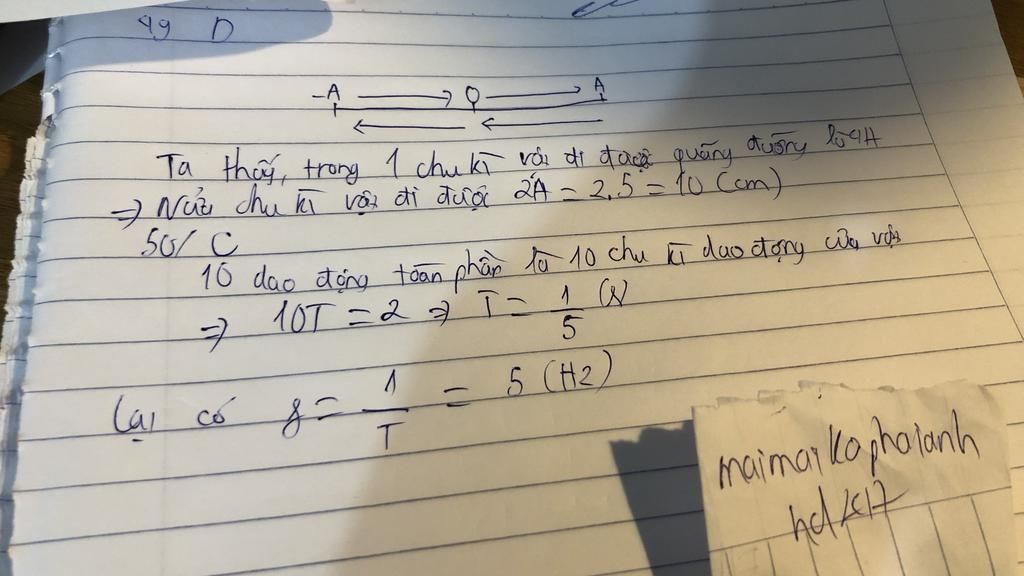 49 D
-A O A
Ta thấy, trong 1 chu kì vật đi được quãng đường là 4A
=> Nửa chu kì vật đi được 2A = 2.5 = 10 (cm)
50/ C
10 dao động toàn phần là 10 chu kì dao động của vật
=> 10T = 2 => T = 1/5 (s)
Lại có f = 1/T = 5 (Hz)
maimaikophaianh
hd/c17